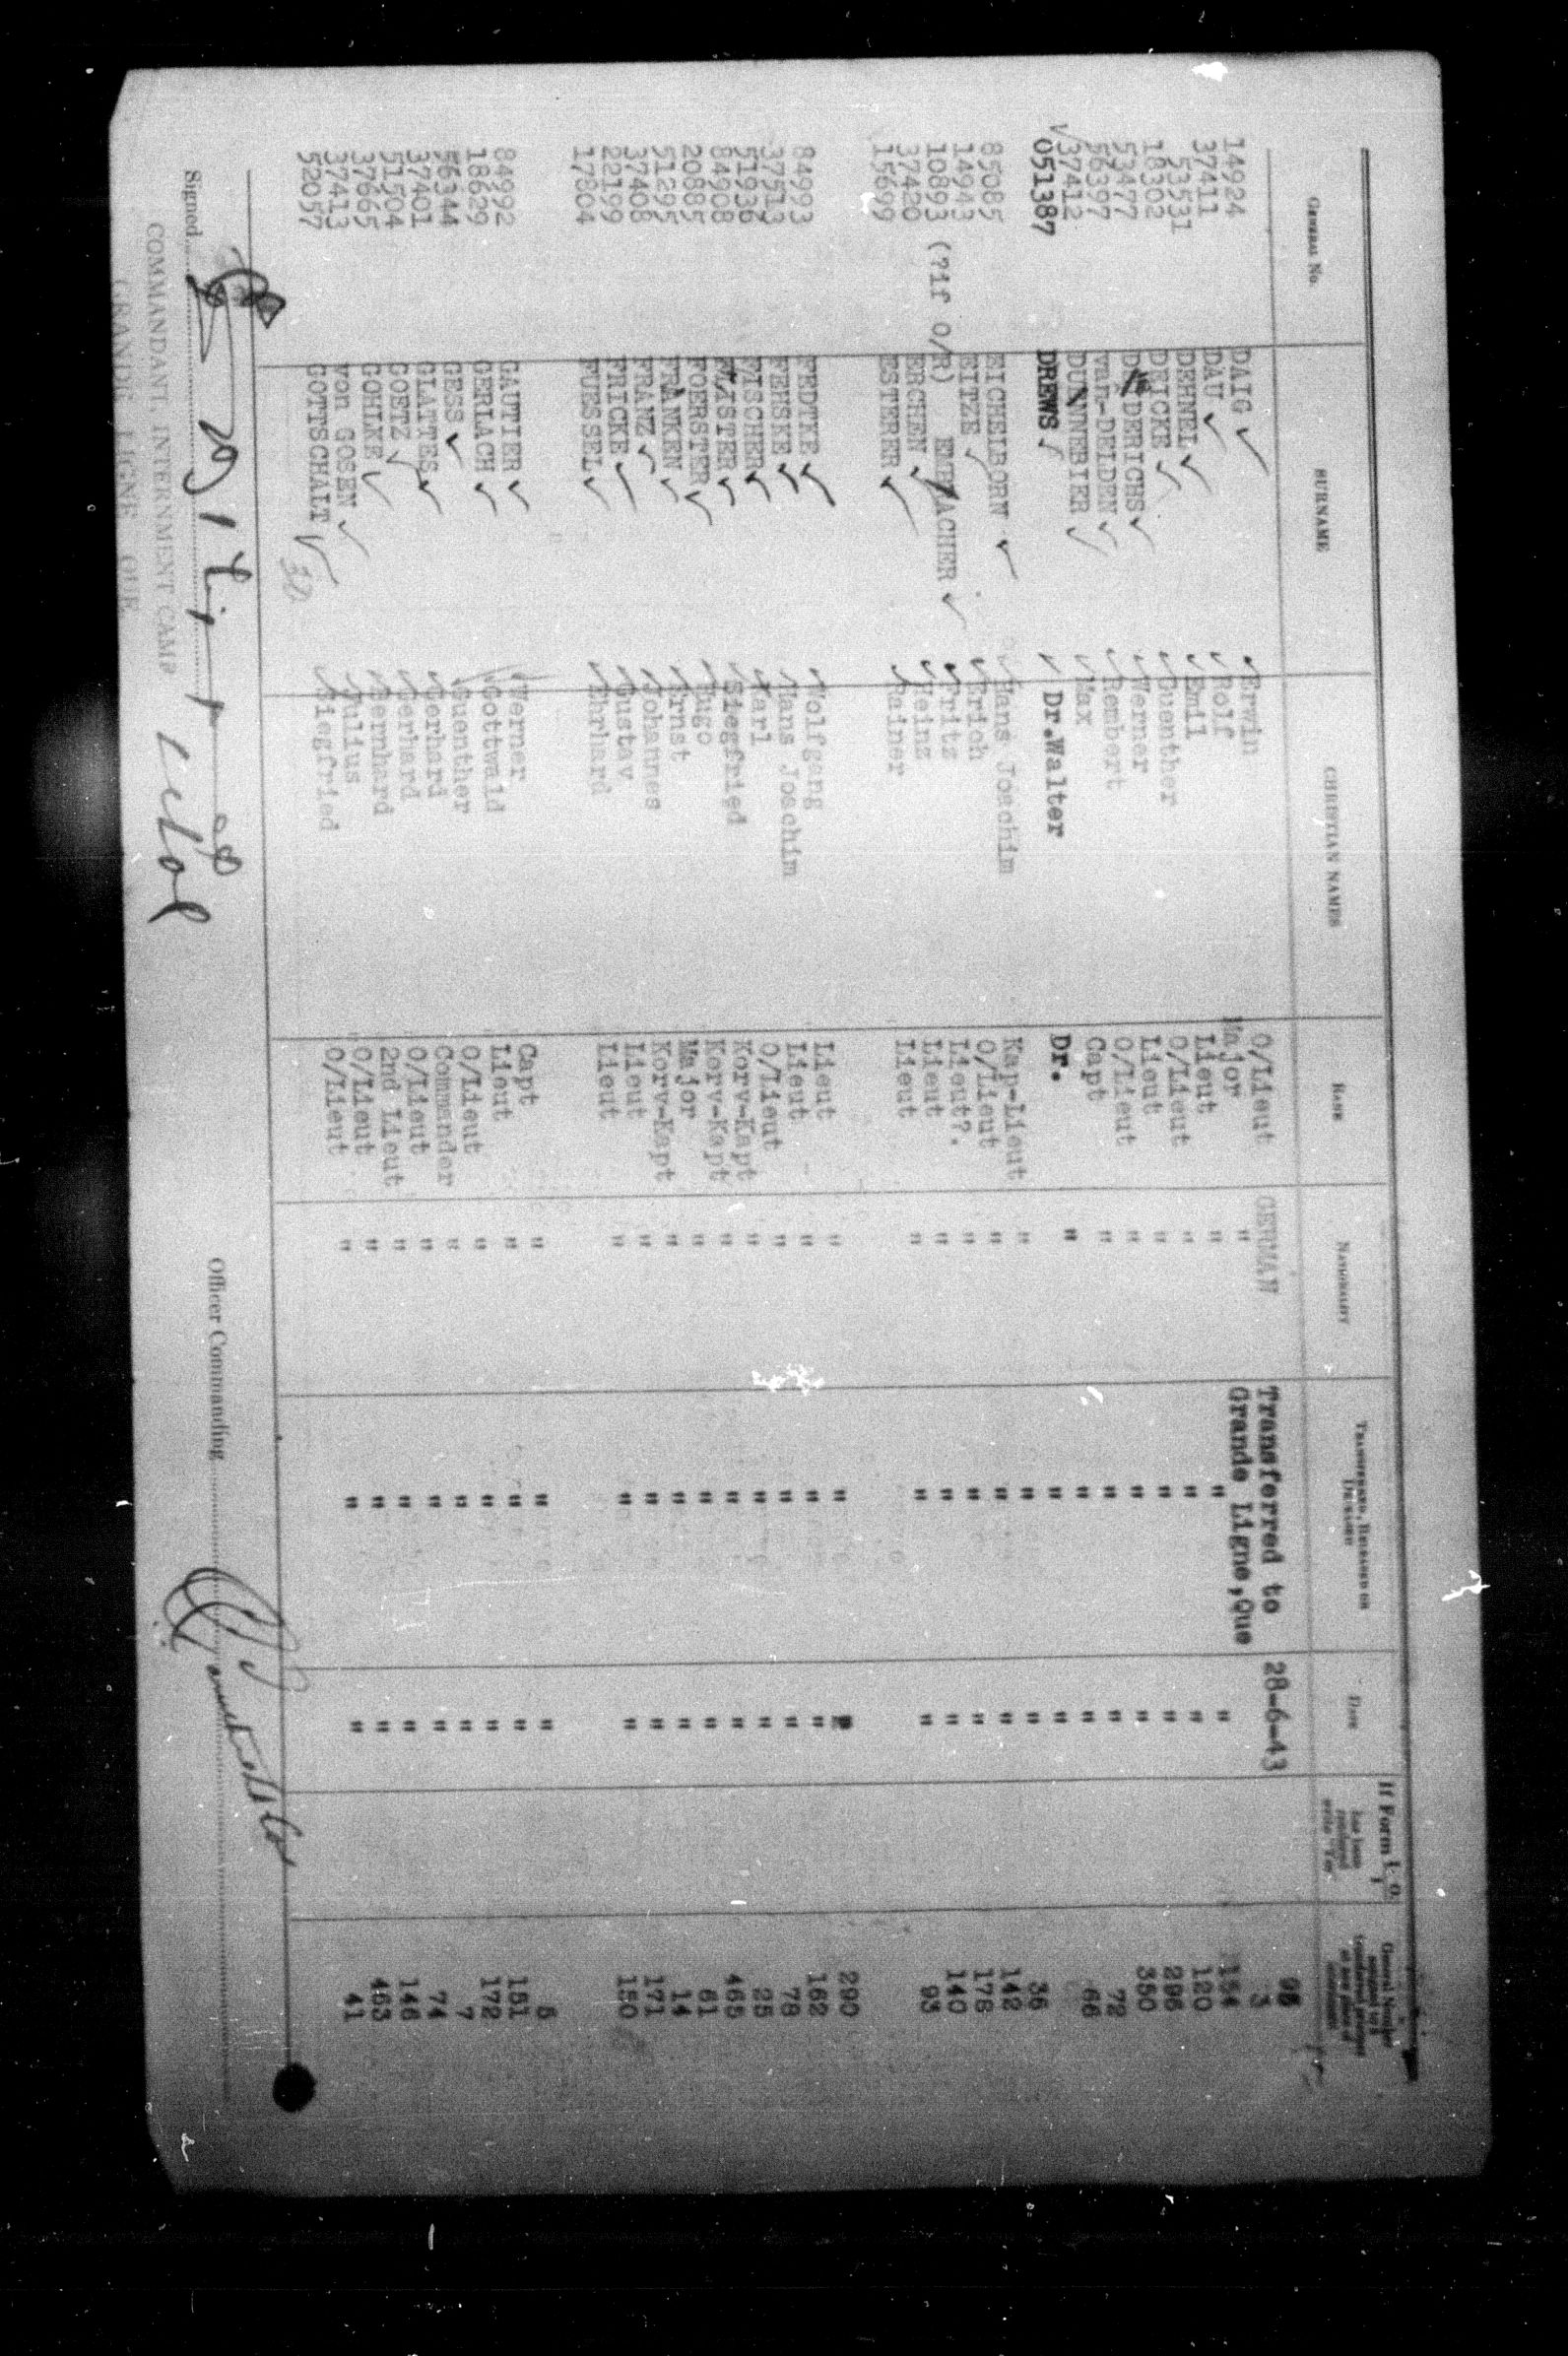 General No. SURNAME CHRISTIAN NAMES RANK NATIONALITY TRANSFERRED, RELEASED OR DECEASED DATE If Form
14924 DAIG Erwin O/Lieut GERMAN Transferred to 28-6-43 98
37411 DAU Rolf Major " Grande Ligne,Que 3
53531 DEHNEL Emil Lieut " " " 154
18302 DEICKE Guenther O/Lieut " " " 120
53477 DERICHS Werner Lieut " " " 296
56397 van-DELDEN Rembert O/Lieut " " " 350
37412 DUNNEBIER Max Capt " " " 72
051387 DREWS Dr.Walter Dr. " " " 66
85085 EICHELBORN Hans Joachim Kap-Lieut " " " 36
14943 EITZE Erich O/Lieut " " " 142
10893 (?if O/R) EMBACHER Fritz Lieut?. " " " 178
37420 ERCHEN Heinz Lieut " " " 140
15699 ESTERER Rainer Lieut " " " 93
84993 FEDTKE Wolfgang Lieut " " " 290
37513 FEHSKE Hans Joachim Lieut " " " 162
51936 FISCHER Karl O/Lieut " " " 78
84908 FLISTER Siegfried Korv-Kapt " " " 25
20885 FOERSTER Hugo Korv-Kapt " " " 465
51295 FRANKEN Ernst Major " " " 61
37408 FRANZ Johannes Korv-Kapt " " " 14
22199 FRICKE Gustav Lieut " " " 171
17804 FUESSEL Ehrhard Lieut " " " 150
84992 GAUTIER Werner Capt " " " 5
18629 GERLACH Gottwald Lieut " " " 151
56344 GESS Guenther O/Lieut " " " 172
37401 GLATTES Gerhard Commander " " " 7
51504 GOETZ Gerhard O/Lieut " " " 74
37665 GOHLKE Bernhard 2nd Lieut " " " 146
37413 von GOSEN Julius O/Lieut " " " 463
52057 GOTTSCHALT Siegfried O/Lieut " " " 41
Signed
Officer Commanding
COMMANDANT, INTERNMENT CAMP
GRANDE LIGNE QUE